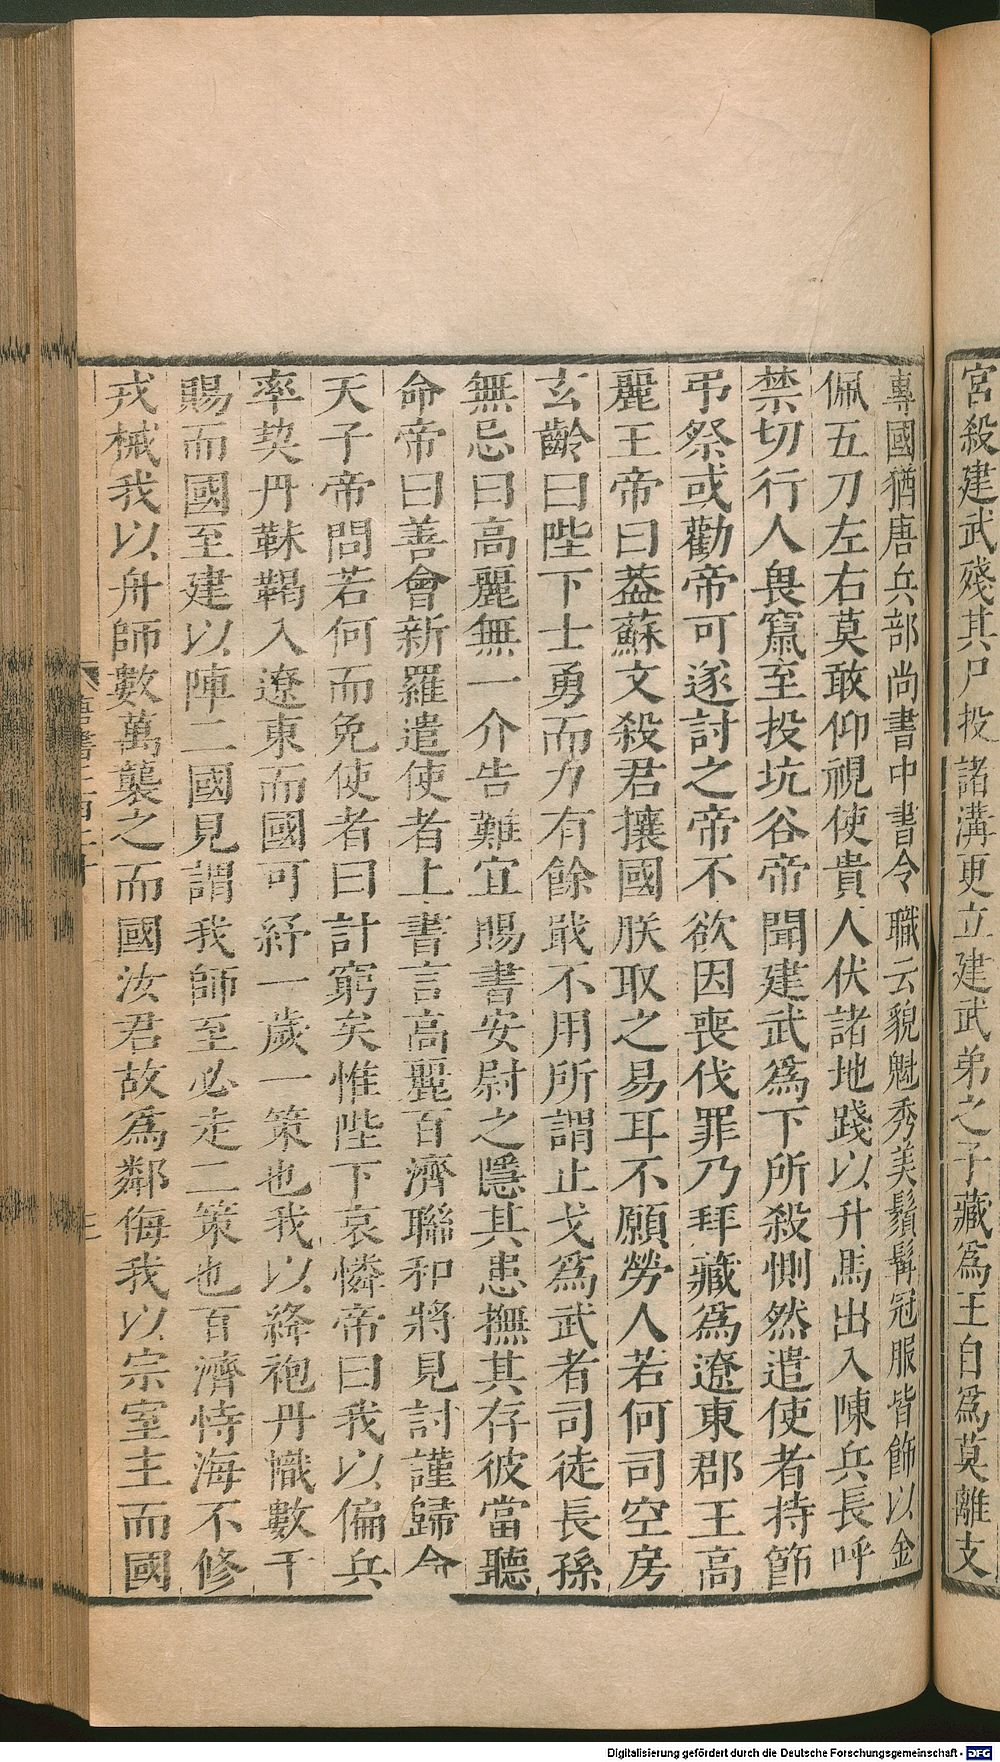 宮殺建武殘其尸投諸溝更立建武弟之子藏爲王自爲莫離支
專國猶唐兵部尚書中書令職云貌魁秀美鬚髯冠服皆飾以金
佩五刀左右莫敢仰視使貴人伏諸地踐以升馬出入陳兵長呼
禁切行人畏竄至投坑谷帝聞建武爲下所殺惻然遣使者持節
弔祭或勸帝可遂討之帝不欲因喪伐罪乃拜藏爲遼東郡王高
麗王帝曰蓋蘇文殺君攘國朕取之易耳不願勞人若何司空房
玄齡曰陛下士勇而力有餘戢不用所謂止戈爲武者司徒長孫
無忌曰高麗無一介告難宜賜書安尉之隱其患撫其存彼當聽
命帝曰善會新羅遣使者上書言高麗百濟聯和將見討謹歸命
天子帝問若何而免使者曰計窮矣惟陛下哀憐帝曰我以偏兵
率契丹靺鞨入遼東而國可紓一歲一策也我以絳袍丹幟數千
賜而國至建以陣二國見謂我師至必走二策也百濟恃海不修
戎械我以舟師數萬襲之而國汝君故爲鄰侮我以宗室主而國
三
Digitalisierung gefördert durch die Deutsche Forschungsgemeinschaft - DFG